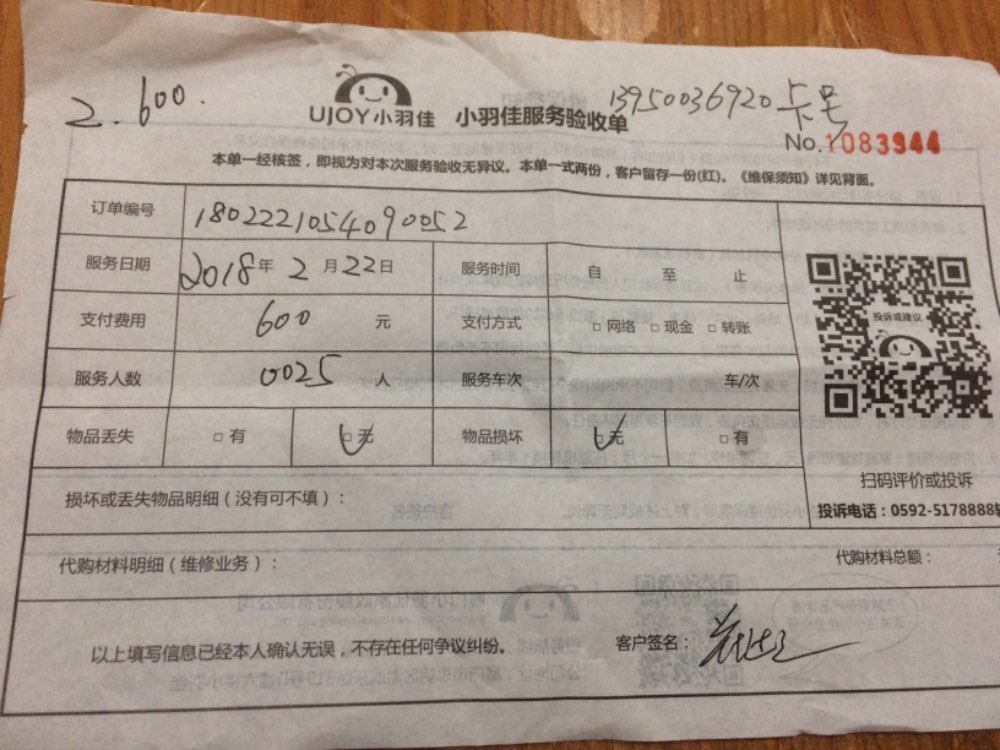 2.600.
UJOY小羽佳 小羽佳服务验收单
13950036920 卡号
No.1083944
本单一经核签，即视为对本次服务验收无异议。本单一式两份，客户留存一份(红)。《维保须知》详见背面。
订单编号 1802221054090052
服务日期 2018年2月22日 服务时间 自 至 止
支付费用 600 元 支付方式 □网络 □现金 □转账
投诉或建议
服务人数 0025 人 服务车次 车/次
物品丢失 □有 □无 物品损坏 □无 □有
扫码评价或投诉
损坏或丢失物品明细（没有可不填）：
投诉电话：0592-5178888
代购材料明细（维修业务）： 代购材料总额：
以上填写信息已经本人确认无误，不存在任何争议纠纷。 客户签名：